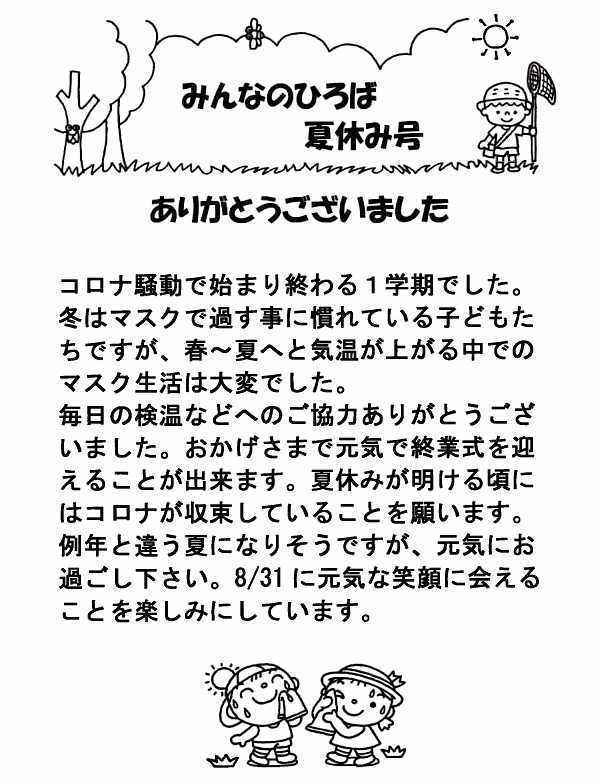 みんなのひろば
夏休み号
ありがとうございました
コロナ騒動で始まり終わる１学期でした。
冬はマスクで過す事に慣れている子どもた
ちですが、春～夏へと気温が上がる中での
マスク生活は大変でした。
毎日の検温などへのご協力ありがとうござ
いました。おかげさまで元気で終業式を迎
えることが出来ます。夏休みが明ける頃に
はコロナが収束していることを願います。
例年と違う夏になりそうですが、元気にお
過ごし下さい。8/31に元気な笑顔に会える
ことを楽しみにしています。